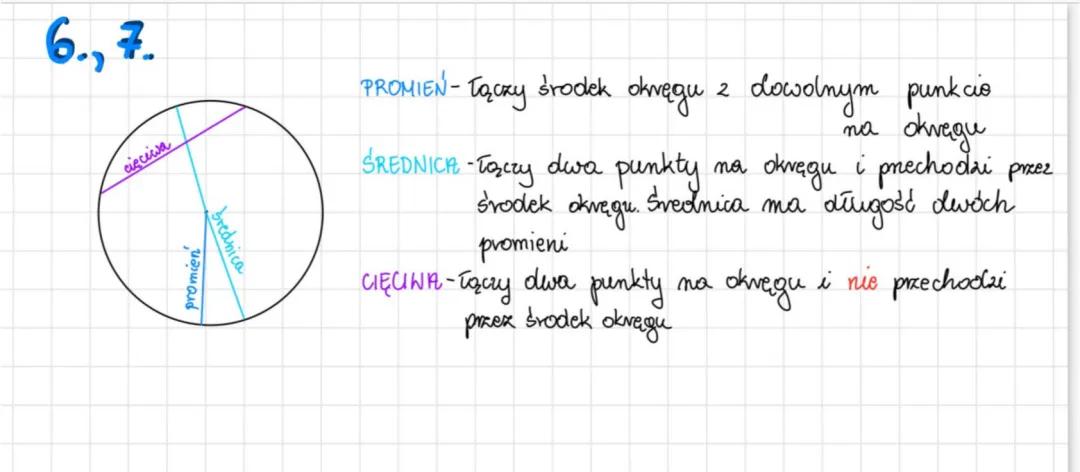 6., 7.
cięciwa
średnica
promień
PROMIEŃ - Łączy środek okręgu z dowolnym punkcie
na okręgu
ŚREDNICA - Łączy dwa punkty na okręgu i przechodzi przez
środek okręgu. Średnica ma długość dwóch
promieni
CIĘCIWA - Łączy dwa punkty na okręgu i nie przechodzi
przez środek okręgu